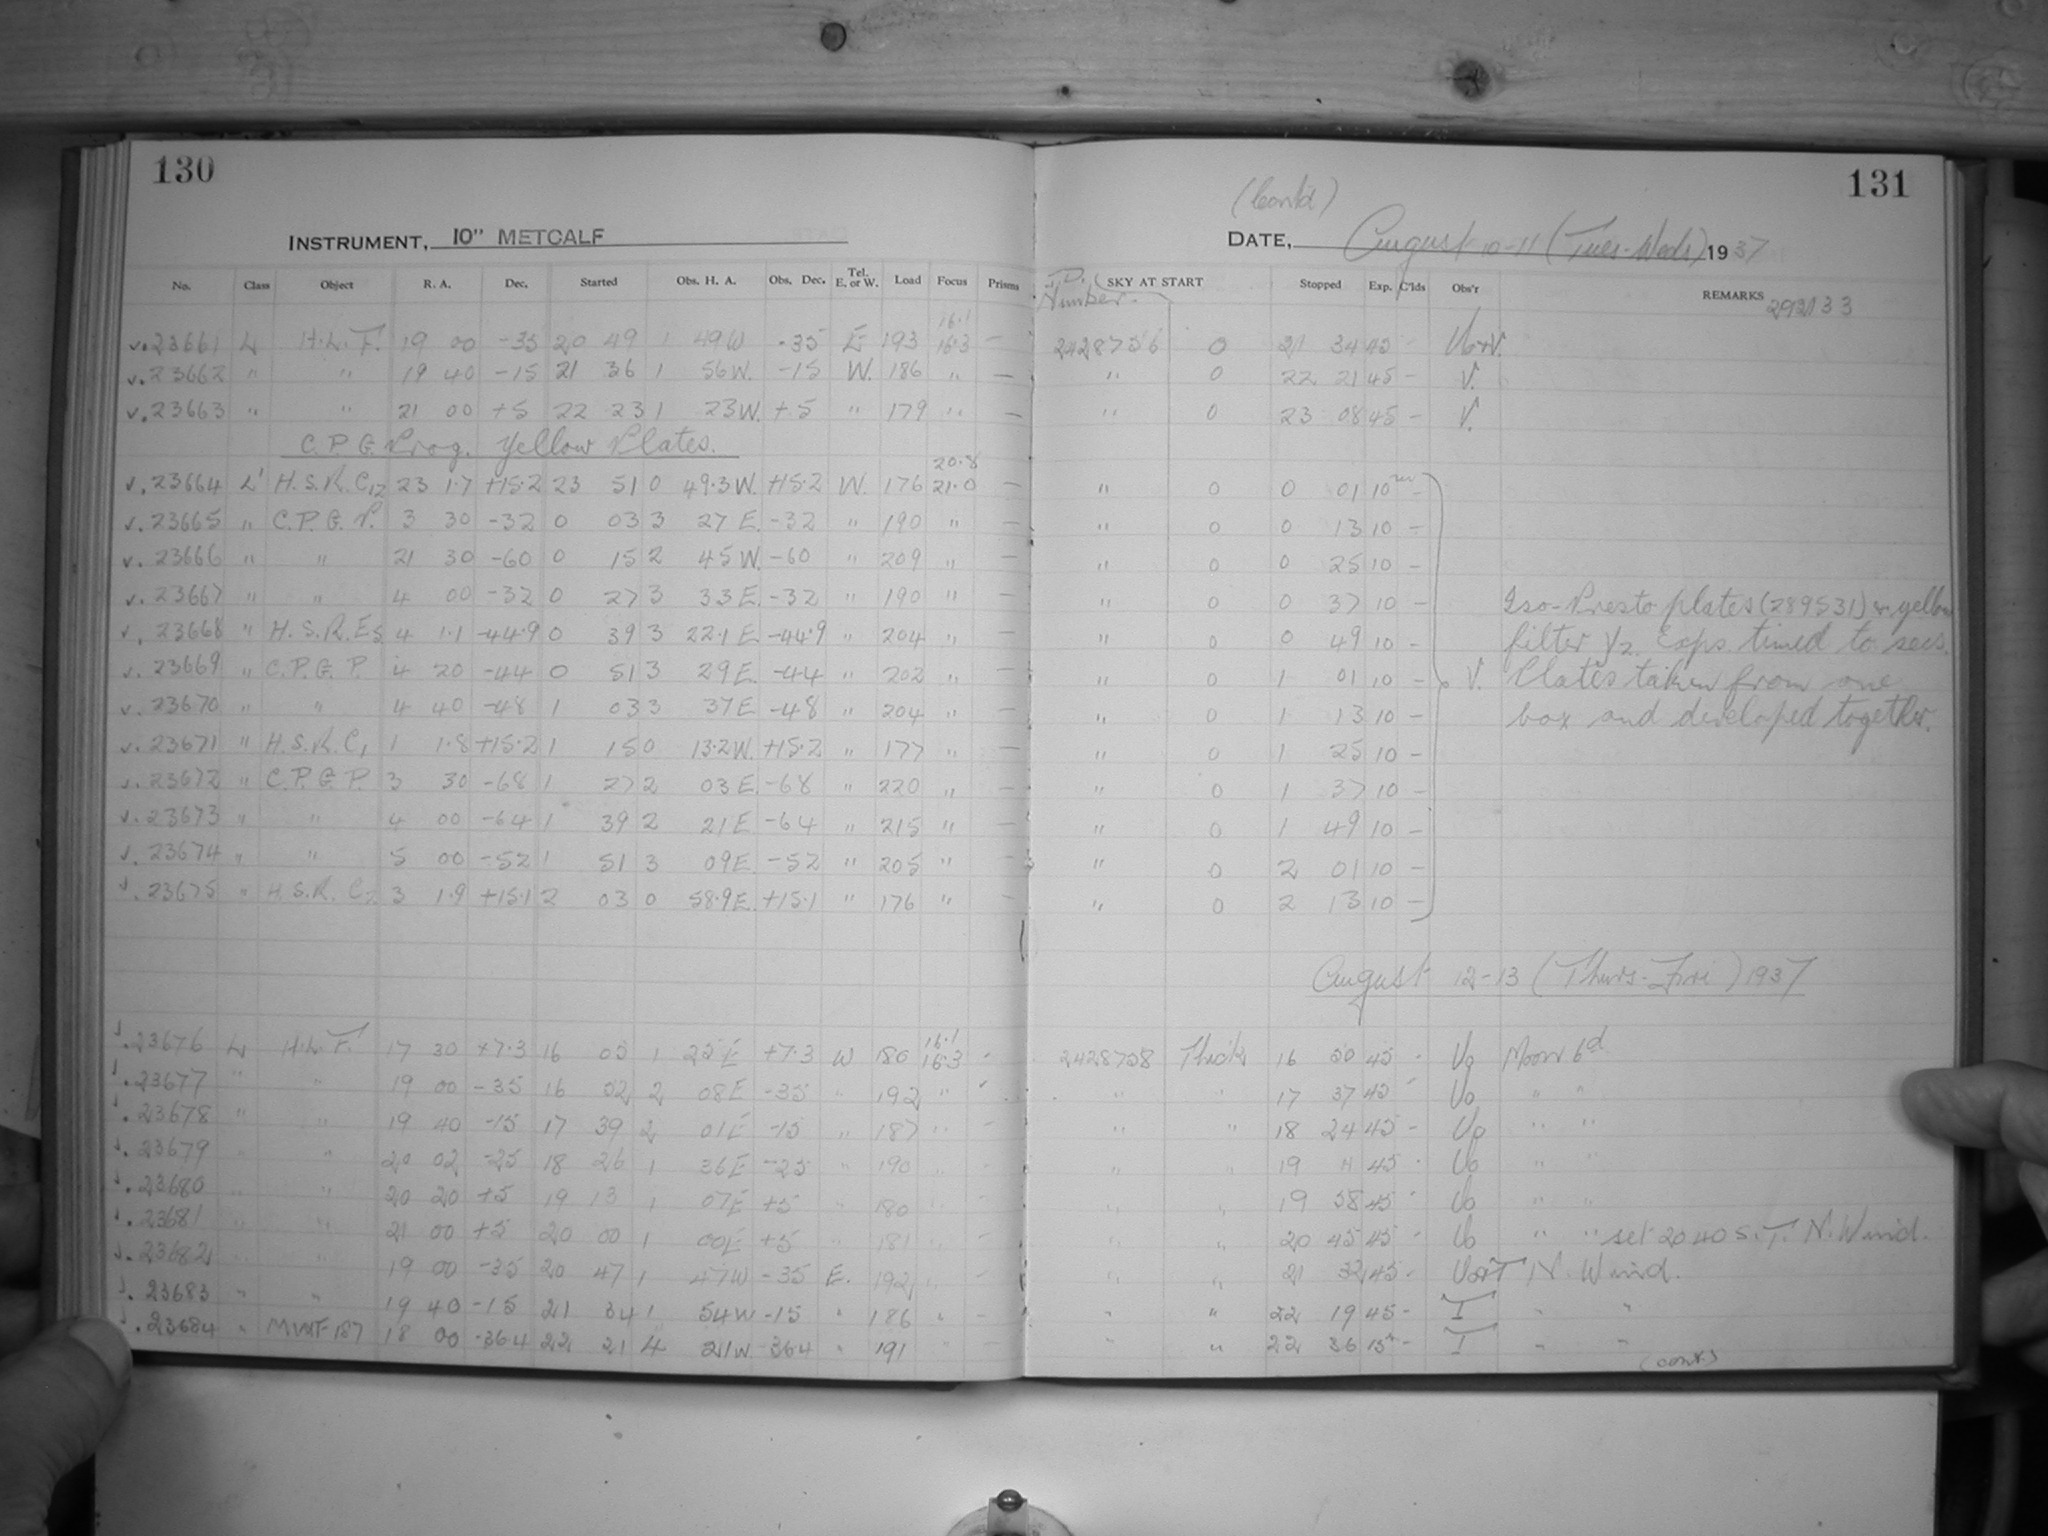 130
INSTRUMENT, 10" METCALF
No. Class Object R. A. Dec. Started Obs. H. A. Obs. Dec. Tel. E. or W. Load Focus Prisms
16.1
23661 L H.L.F. 19 00 -35 20 49 1 49W -35 E 193 16.3 —
23662 " " 19 40 -15 21 36 1 56W. -15 W. 186 " —
23663 " " 21 00 +5 22 23 1 23W. +5 " 179 " —
C.P.G. Prog. Yellow Plates.
20.8
23664 L' H.S.R. C12 23 1.7 +15.2 23 51 0 49.3W. +15.2 W. 176 21.0 —
23665 " C.P.G.P. 3 30 -32 0 03 3 27E. -32 " 190 " —
23666 " " 21 30 -60 0 15 2 45W. -60 " 209 " —
23667 " " 4 00 -32 0 27 3 33E. -32 " 190 " —
23668 " H.S.R. E5 4 1.1 -44.9 0 39 3 22.1E -44.9 " 204 " —
23669 " C.P.G.P. 4 20 -44 0 51 3 29E. -44 " 202 " —
23670 " " 4 40 -48 1 03 3 37E -48 " 204 " —
23671 " H.S.R. C1 1 1.8 +15.2 1 15 0 13.2W. +15.2 " 177 " —
23672 " C.P.G.P. 3 30 -68 1 27 2 03E. -68 " 220 " —
23673 " " 4 00 -64 1 39 2 21E -64 " 215 " —
23674 " " 5 00 -52 1 51 3 09E. -52 " 205 " —
23675 " H.S.R. C2 3 1.9 +15.1 2 03 0 58.9E. +15.1 " 176 " —
16.1
23676 L H.L.F. 17 30 +7.3 16 05 1 25E +7.3 W 180 16.3 -
23677 " " 19 00 -35 16 52 2 08E -35 " 192 " -
23678 " " 19 40 -15 17 39 2 01E -15 " 187 " -
23679 " " 20 02 -25 18 26 1 36E -25 " 190 " -
23680 " " 20 20 +5 19 13 1 07E +5 " 180 " -
23681 " " 21 00 +5 20 00 1 00E +5 " 181 " -
23682 " " 19 00 -35 20 47 1 47W -35 E. 192 " -
23683 " " 19 40 -15 21 34 1 54W -15 " 186 " -
23684 " MWF-187 18 00 -36.4 22 21 4 21W -36.4 " 191 " -
131
(Cont'd)
DATE, August 10-11 (Tues-Weds) 1937
J.D. Number. SKY AT START Stopped Exp. C'lds Obs'r REMARKS 293133
2428756 0 21 34 45 -
" 0 22 21 45 - V.
" 0 23 08 45 - V.
" 0 0 01 10m -
" 0 0 13 10 -
" 0 0 25 10 -
" 0 0 37 10 - Iso-Presto plates (289531) & yellow
" 0 0 49 10 - filter Y2. Exps. timed to secs.
" 0 1 01 10 - V. Plates taken from one
" 0 1 13 10 - box and developed together.
" 0 1 25 10 -
" 0 1 37 10 -
" 0 1 49 10 -
" 0 2 01 10 -
" 0 2 13 10 -
August 12-13 (Thurs-Fri) 1937
2428758 Thick 16 50 45 - Vo Moon 6d
" " 17 37 45 - Vo " "
" " 18 24 45 - Vo " "
" " 19 11 45 - Vo " "
" " 19 58 45 - Vo " "
" " 20 45 45 - Vo " " set 20 40 S.T. N. Wind.
" " 21 32 45 - N. Wind.
" " 22 19 45 - T " "
" " 22 36 15 - T " "
(cont.)